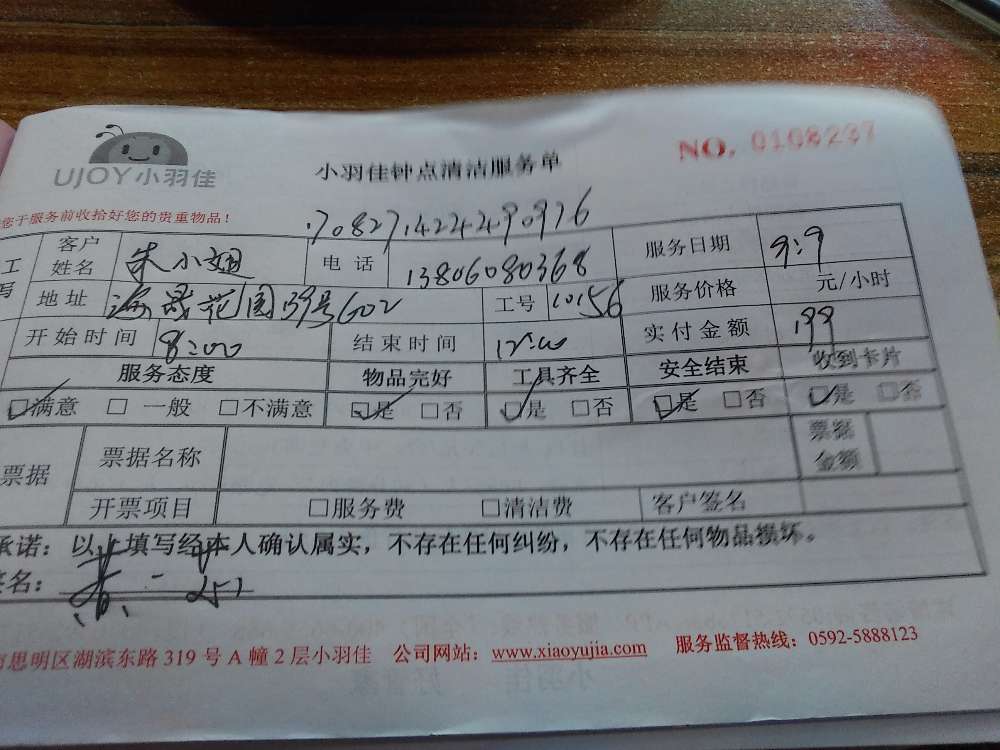 UJOY小羽佳
小羽佳钟点清洁服务单 NO. 0108237
您于服务前收拾好您的贵重物品！
.70827142449 0976
工 客户姓名 朱小姐 电话 13806080368 服务日期 9:9
写 地址 海晟花园39号602 工号 10156 服务价格 元/小时
开始时间 8:00 结束时间 12:00 实付金额 199
服务态度 物品完好 工具齐全 安全结束 收到卡片
☑满意 □一般 □不满意 ☑是 □否 ☑是 □否 ☑是 □否 ☑是 □否
票据 票据名称 票据金额
开票项目 □服务费 □清洁费 客户签名
承诺：以上填写经本人确认属实，不存在任何纠纷，不存在任何物品损坏。
签名：
思明区湖滨东路 319 号 A 幢 2 层小羽佳 公司网站：www.xiaoyujia.com 服务监督热线：0592-5888123